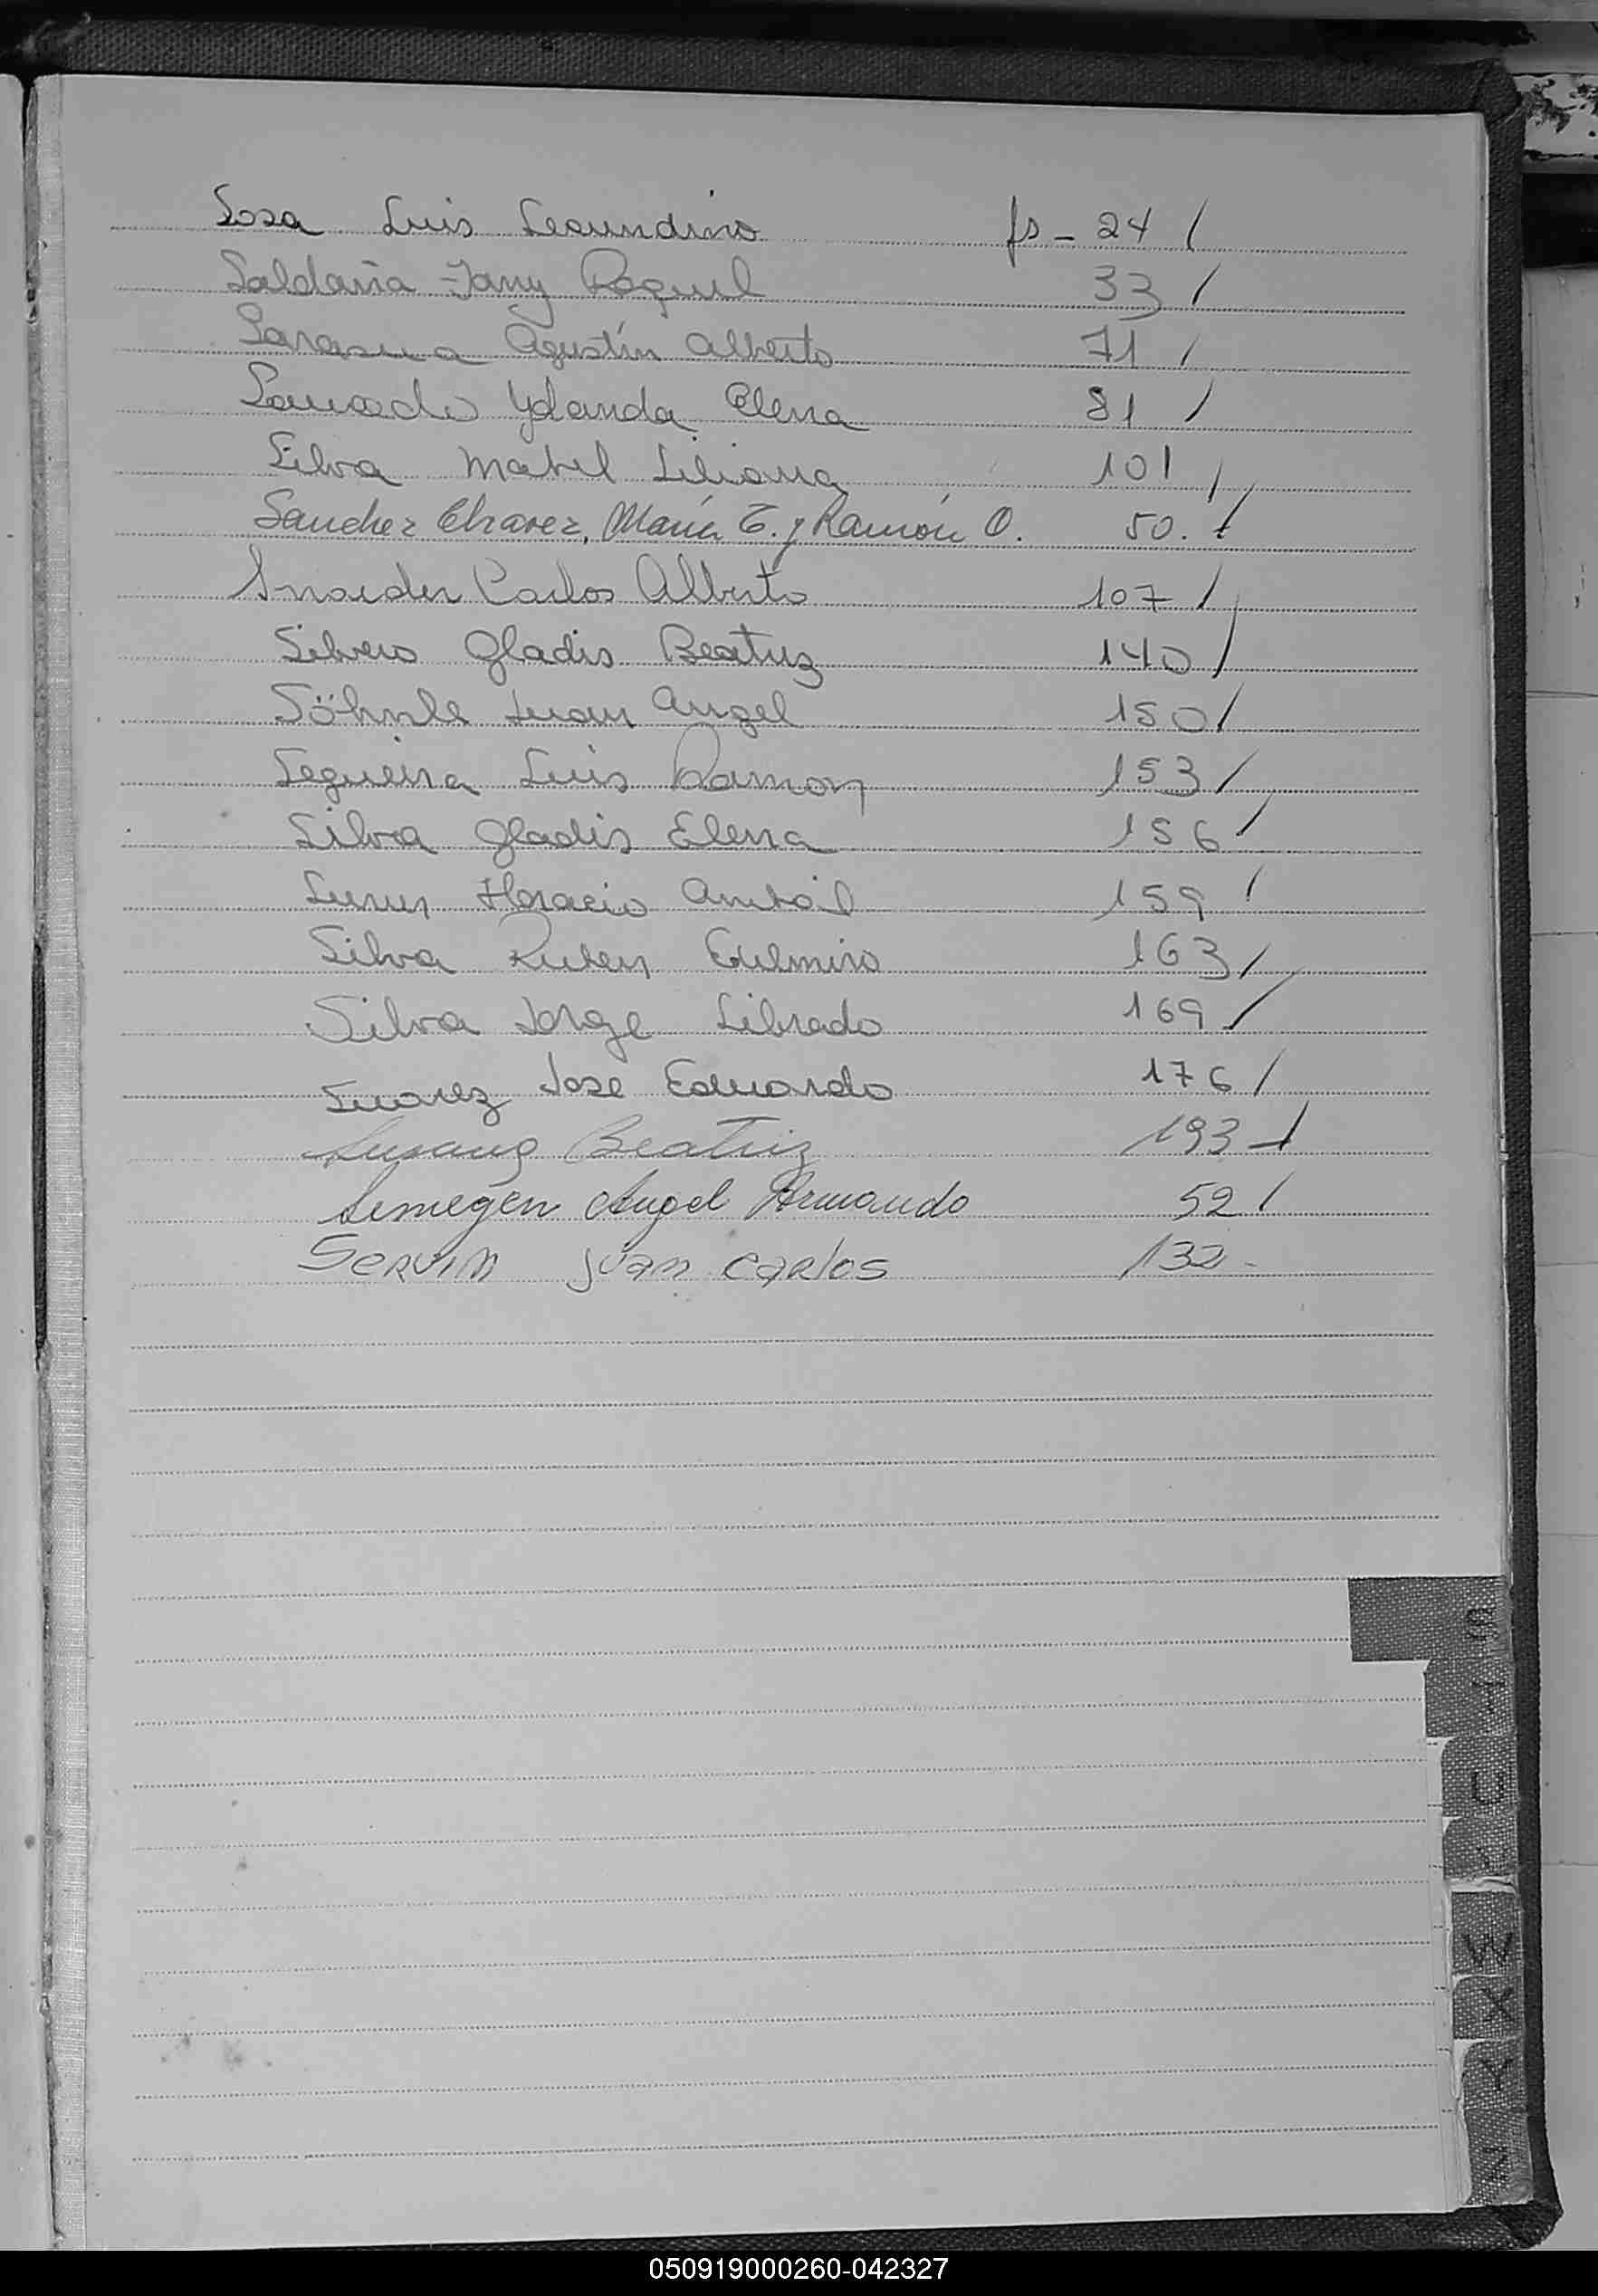 Sosa Luis Secundino fs - 24 /
Saldaña Fany Raquel 33 /
Sarasua Agustín Alberto 71 /
Yolanda Elena 81 /
Silva Mabel Liliana 101 /
Sanchez Chavez, María E. y Ramón O. 50. /
Snaider Carlos Alberto 107 /
Silvero Gladis Beatriz 140 /
Söhnle Juan Angel 150 /
Segueira Luis Ramon 153 /
Silva Gladis Elena 156 /
Horacio Anibal 159 /
Silva Ruben Edelmiro 163 /
Silva Jorge Librado 169 /
Suarez Jose Eduardo 176 /
Beatriz 193 /
Semegen Angel Armando 52 /
Servin Juan Carlos 132 -
S
T
U
V
W
X
Y
Z
050919000260-042327